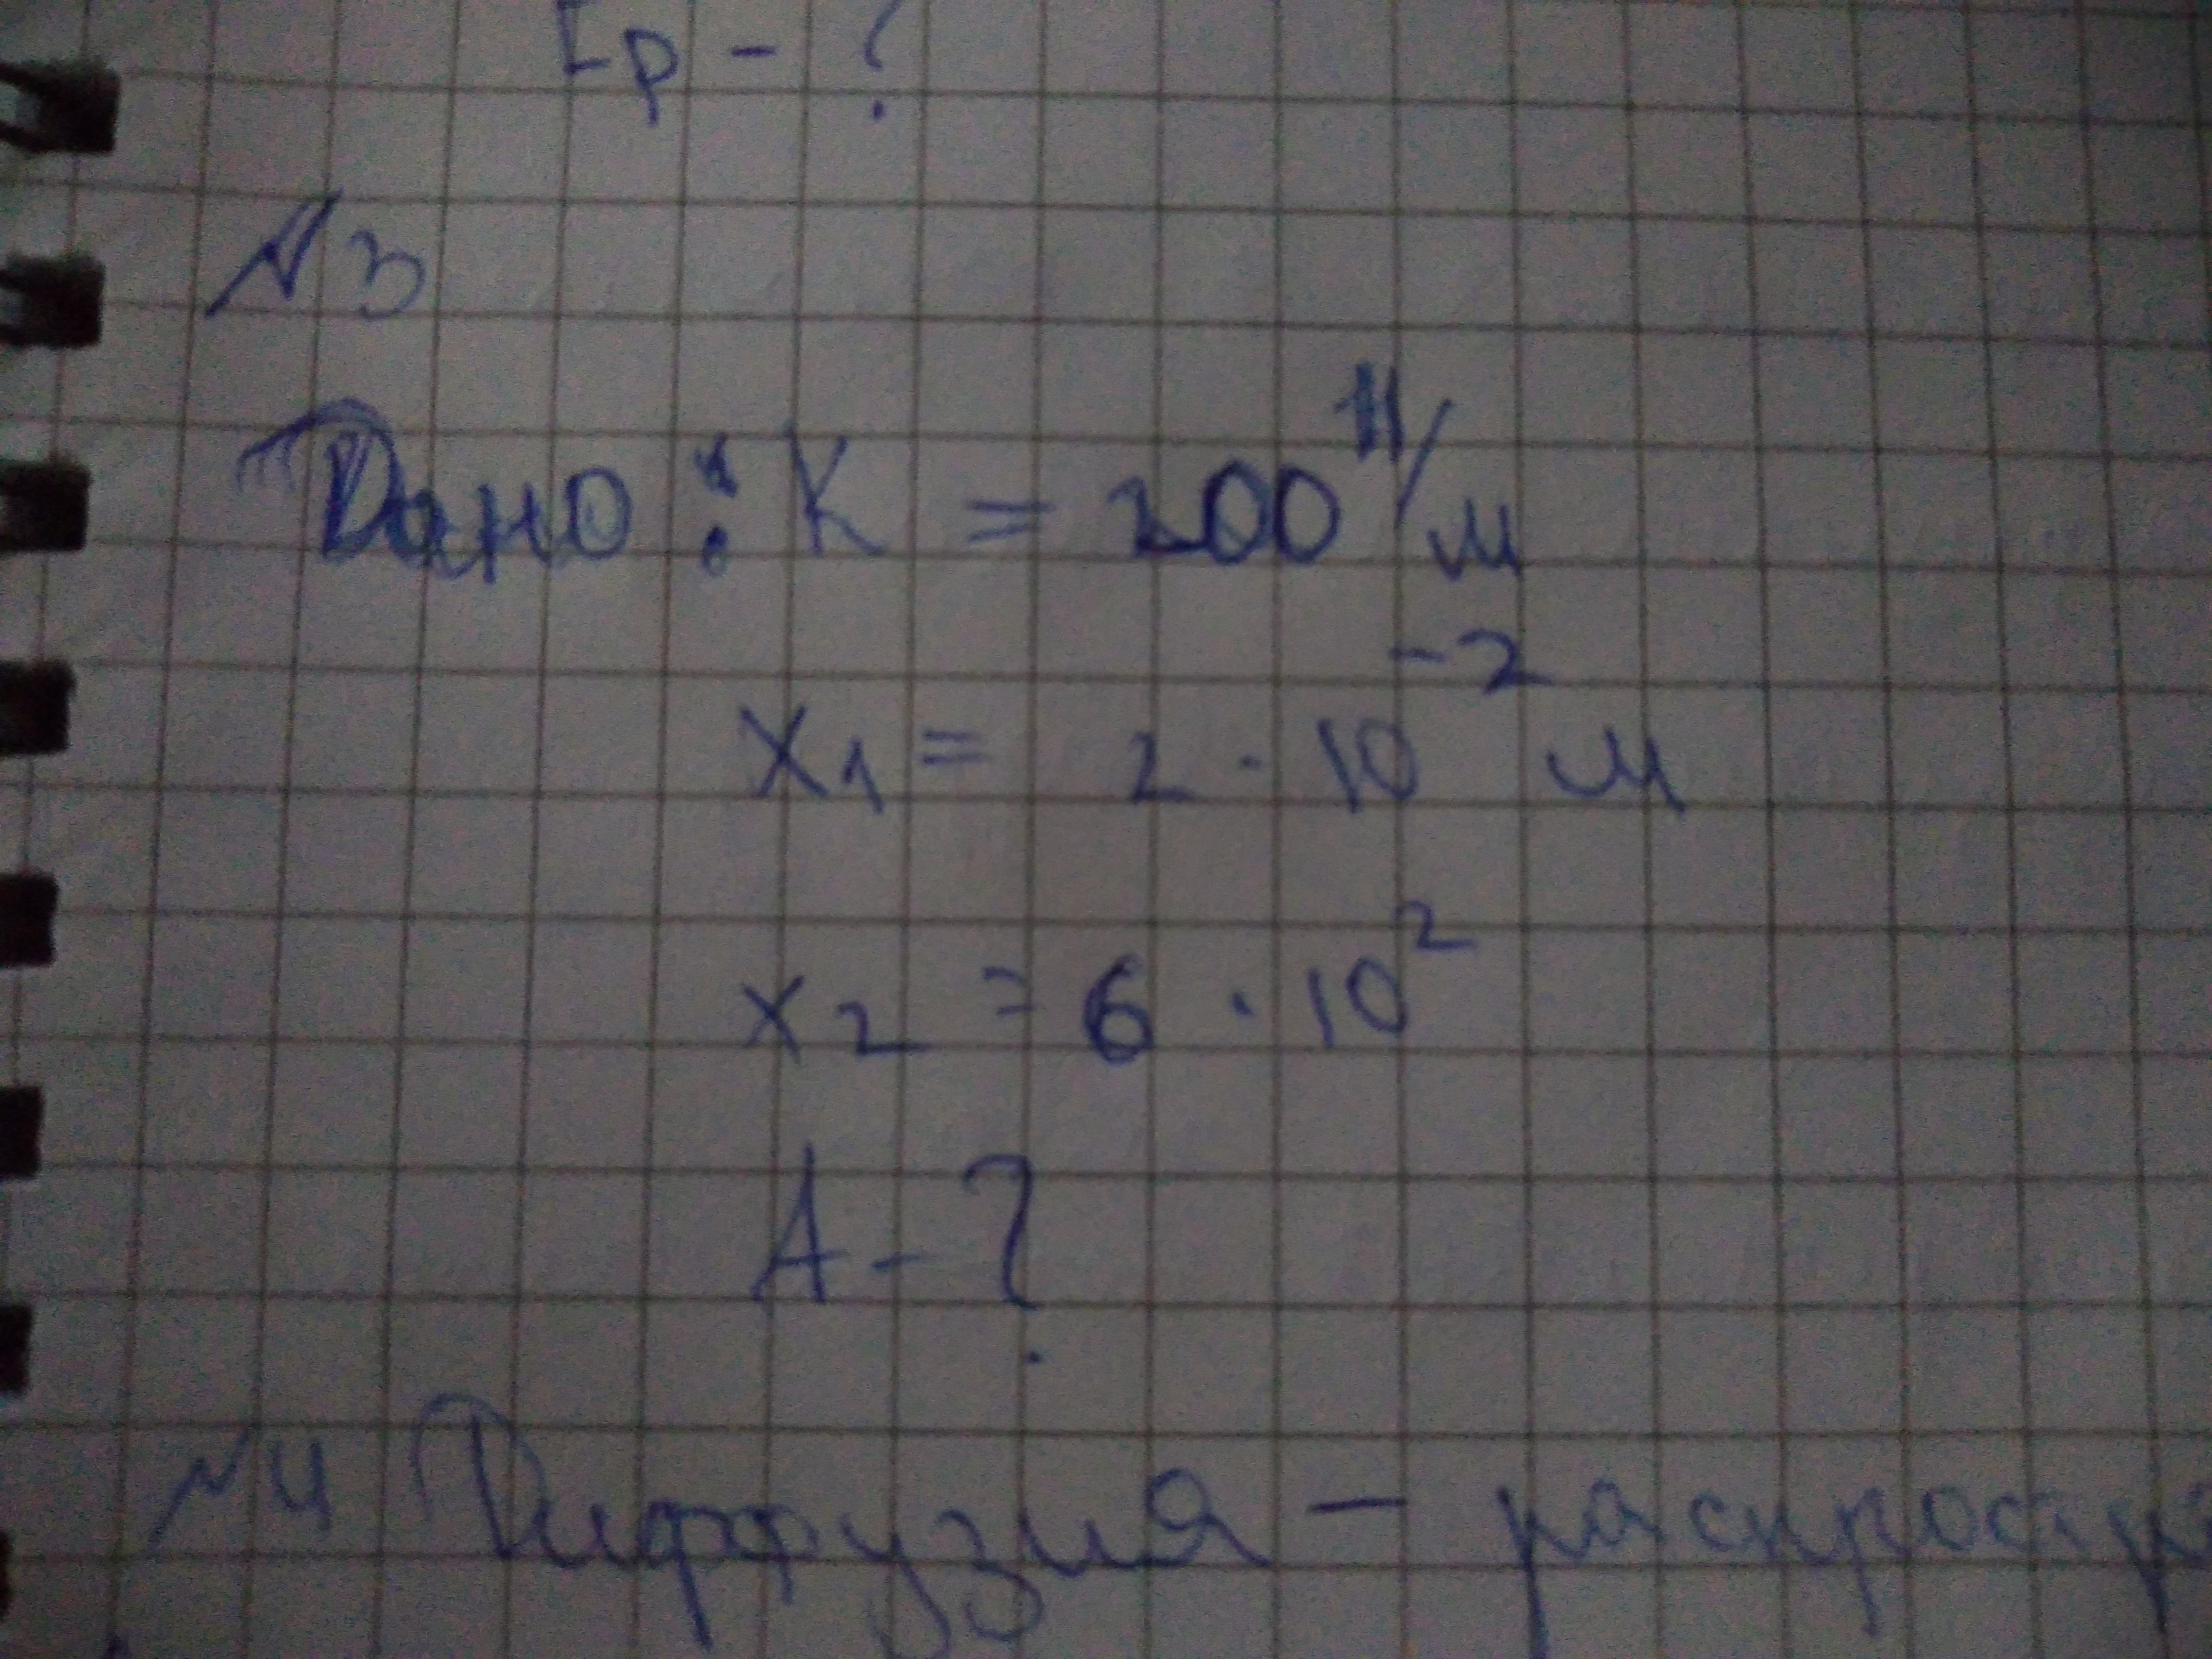 Ep - ?
№3
Дано: K = 200 Н/м
x₁ = 2 · 10⁻² м
x₂ = 6 · 10²
A - ?
№4 Диффузия - распростр